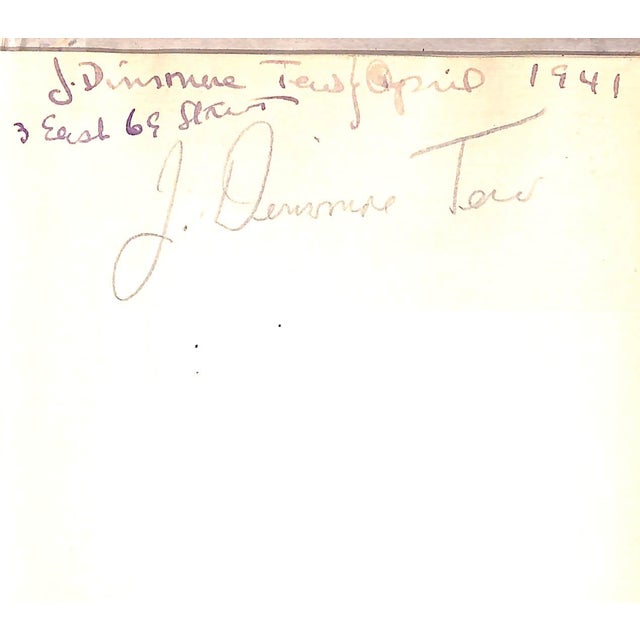 J. Dinsmore Tew} April 1941
3 East 69 Street
J. Dinsmore Tew